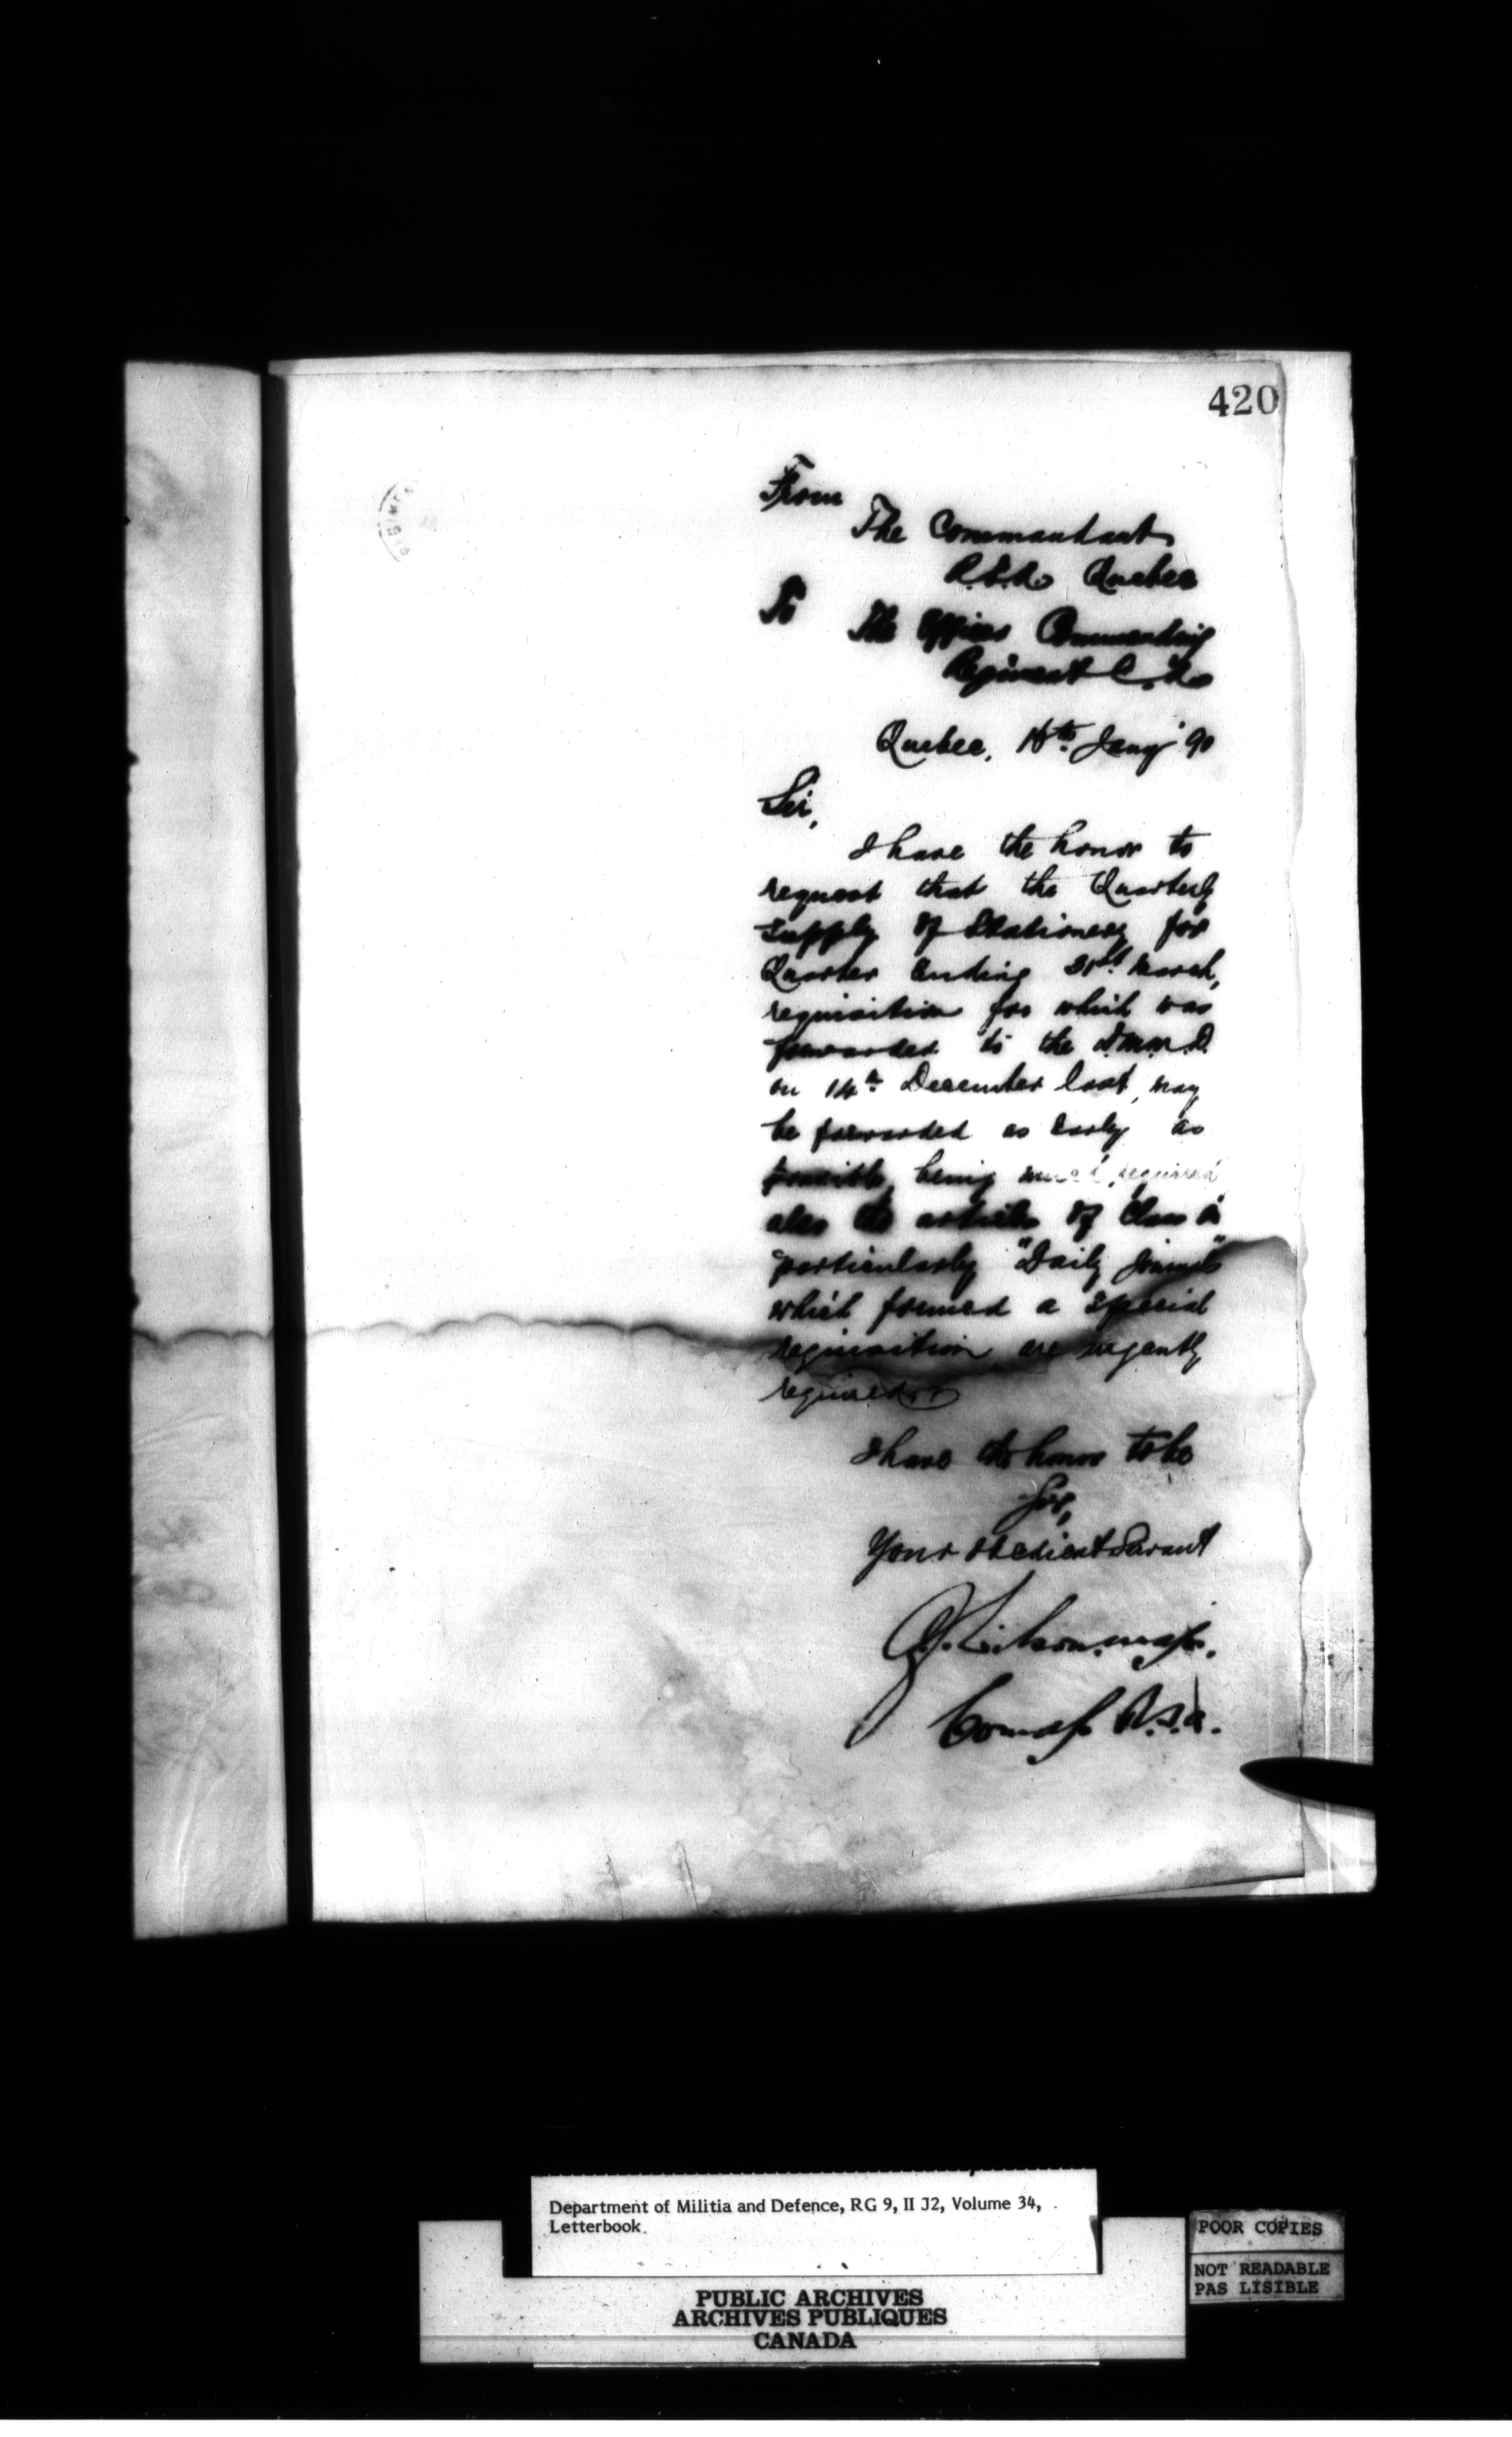 420
From
The Commandant
R.S.A. Quebec
To The Officer Commanding
Regiment C.A.
Quebec, 16th Jany 90
Sir,
I have the honor to
request that the Quarterly
supply of Stationery for
Quarter ending 31st March,
requisition for which was
forwarded to the
on 14th December last, may
be forwarded as early as
possible, being much required
also the articles of Class
particularly "Daily Journals"
which formed a special
requisition are urgently
required
I have the honor to be
Sir,
Your obedient Servant
Maj.
R.S.A.
Department of Militia and Defence, RG 9, II J2, Volume 34,
Letterbook
POOR COPIES
NOT READABLE
PAS LISIBLE
PUBLIC ARCHIVES
ARCHIVES PUBLIQUES
CANADA